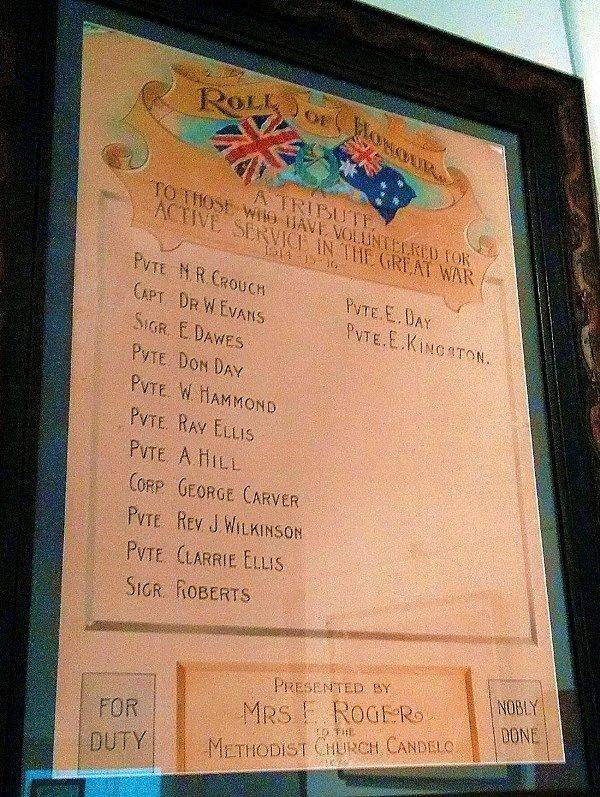 ROLL OF HONOUR
A TRIBUTE
TO THOSE WHO HAVE VOLUNTEERED FOR
ACTIVE SERVICE IN THE GREAT WAR
1914-15-16
PVTE N.R. CROUCH
CAPT DR W. EVANS
SIGR. E. DAWES
PVTE DON DAY
PVTE. W. HAMMOND
PVTE. RAY ELLIS
PVTE A. HILL
CORP GEORGE CARVER
PVTE REV J. WILKINSON
PVTE CLARRIE ELLIS
SIGR. ROBERTS
PVTE. E. DAY
PVTE. E. KINGSTON.
FOR
DUTY
PRESENTED BY
MRS E. ROGER
TO THE
METHODIST CHURCH, CANDELO
NOBLY
DONE